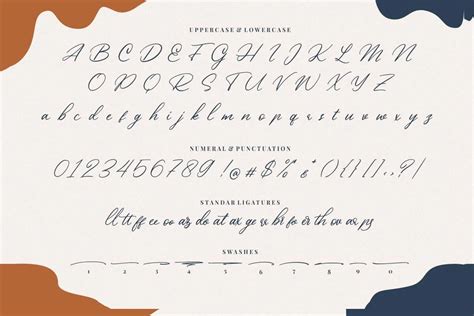 UPPERCASE & LOWERCASE
A B C D E F G H I J K L M N
O P Q R S T U V W X Y Z
a b c d e f g h i j k l m n o p q r s t u v w x y z
NUMERAL & PUNCTUATION
0123456789!@#$%&*(){}[]:,.?/
STANDAR LIGATURES
ll tt ff ee oo az do at ax ge ss br fo ir th ov ar ps
SWASHES
1 2 3 4 5 6 7 8 9 0